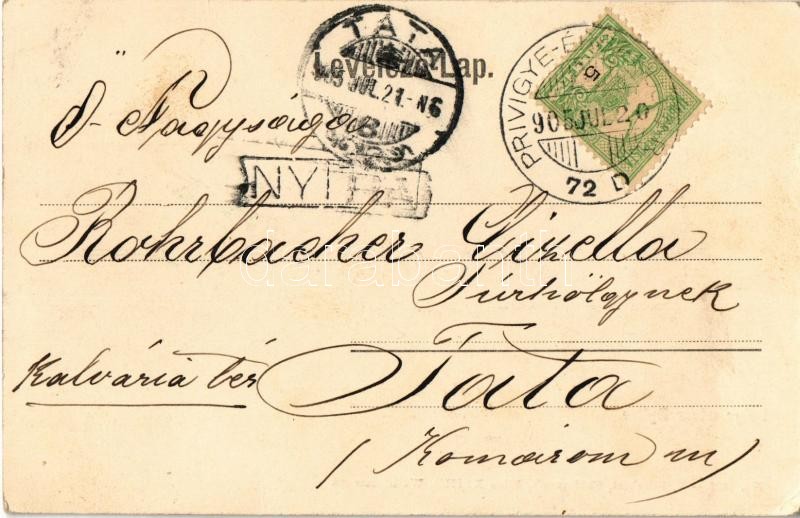 Levelező-Lap.
TATA
905 JUL. 21. N6
PRIVIGYE-É
905 JUL 20
72 D
5
Ő Nagysága
NYITRA
Rohrbacher Gizella
Úrhölgynek
Kalvária tér
Tata
(Komárom m)
darabanth